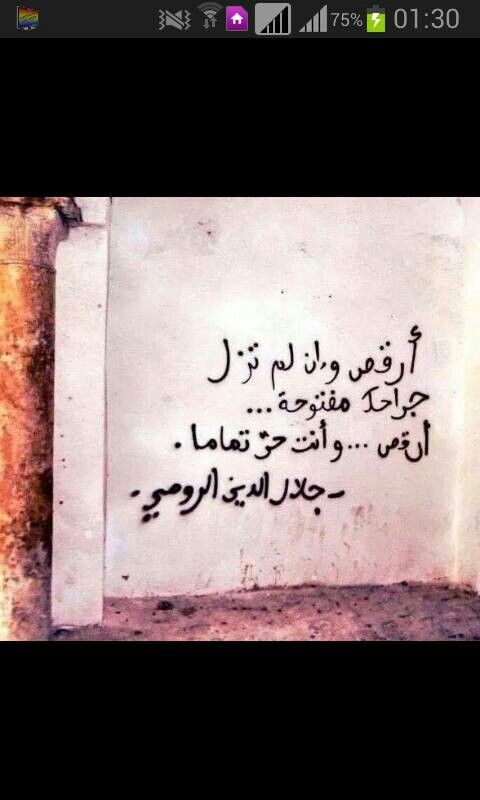 75% 01:30
أرقص وان لم تزل
جراحك مفتوحة ...
أرقص ... وأنت حرّ تماما .
- جلال الدين الرومي .